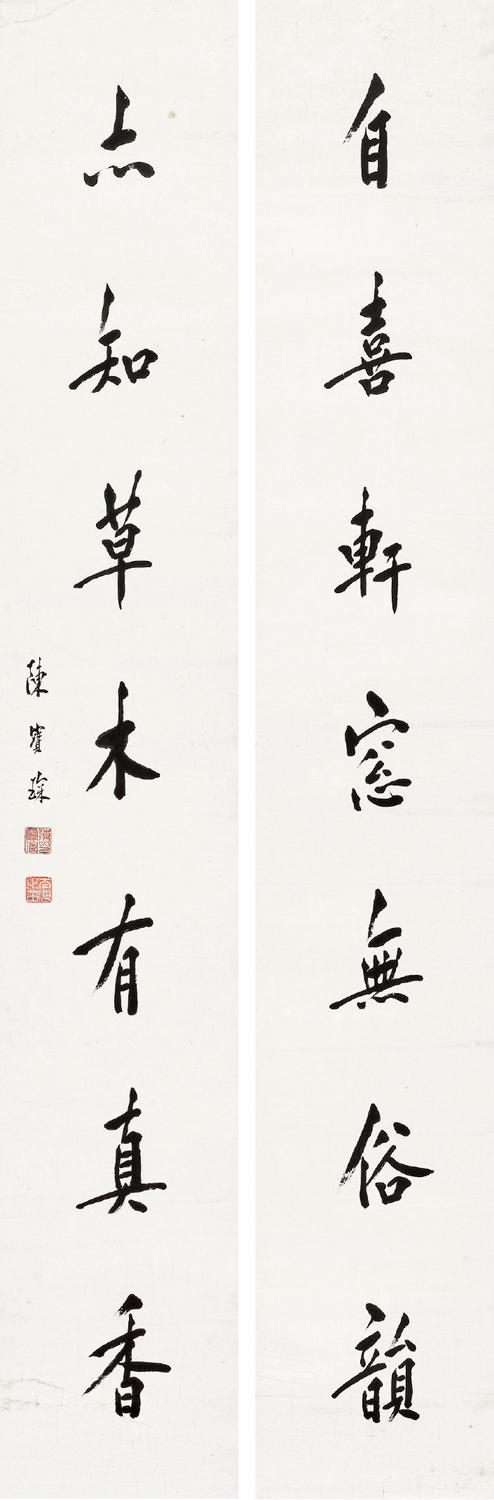 自喜軒窓無俗韻
亦知草木有真香
陳寶琛